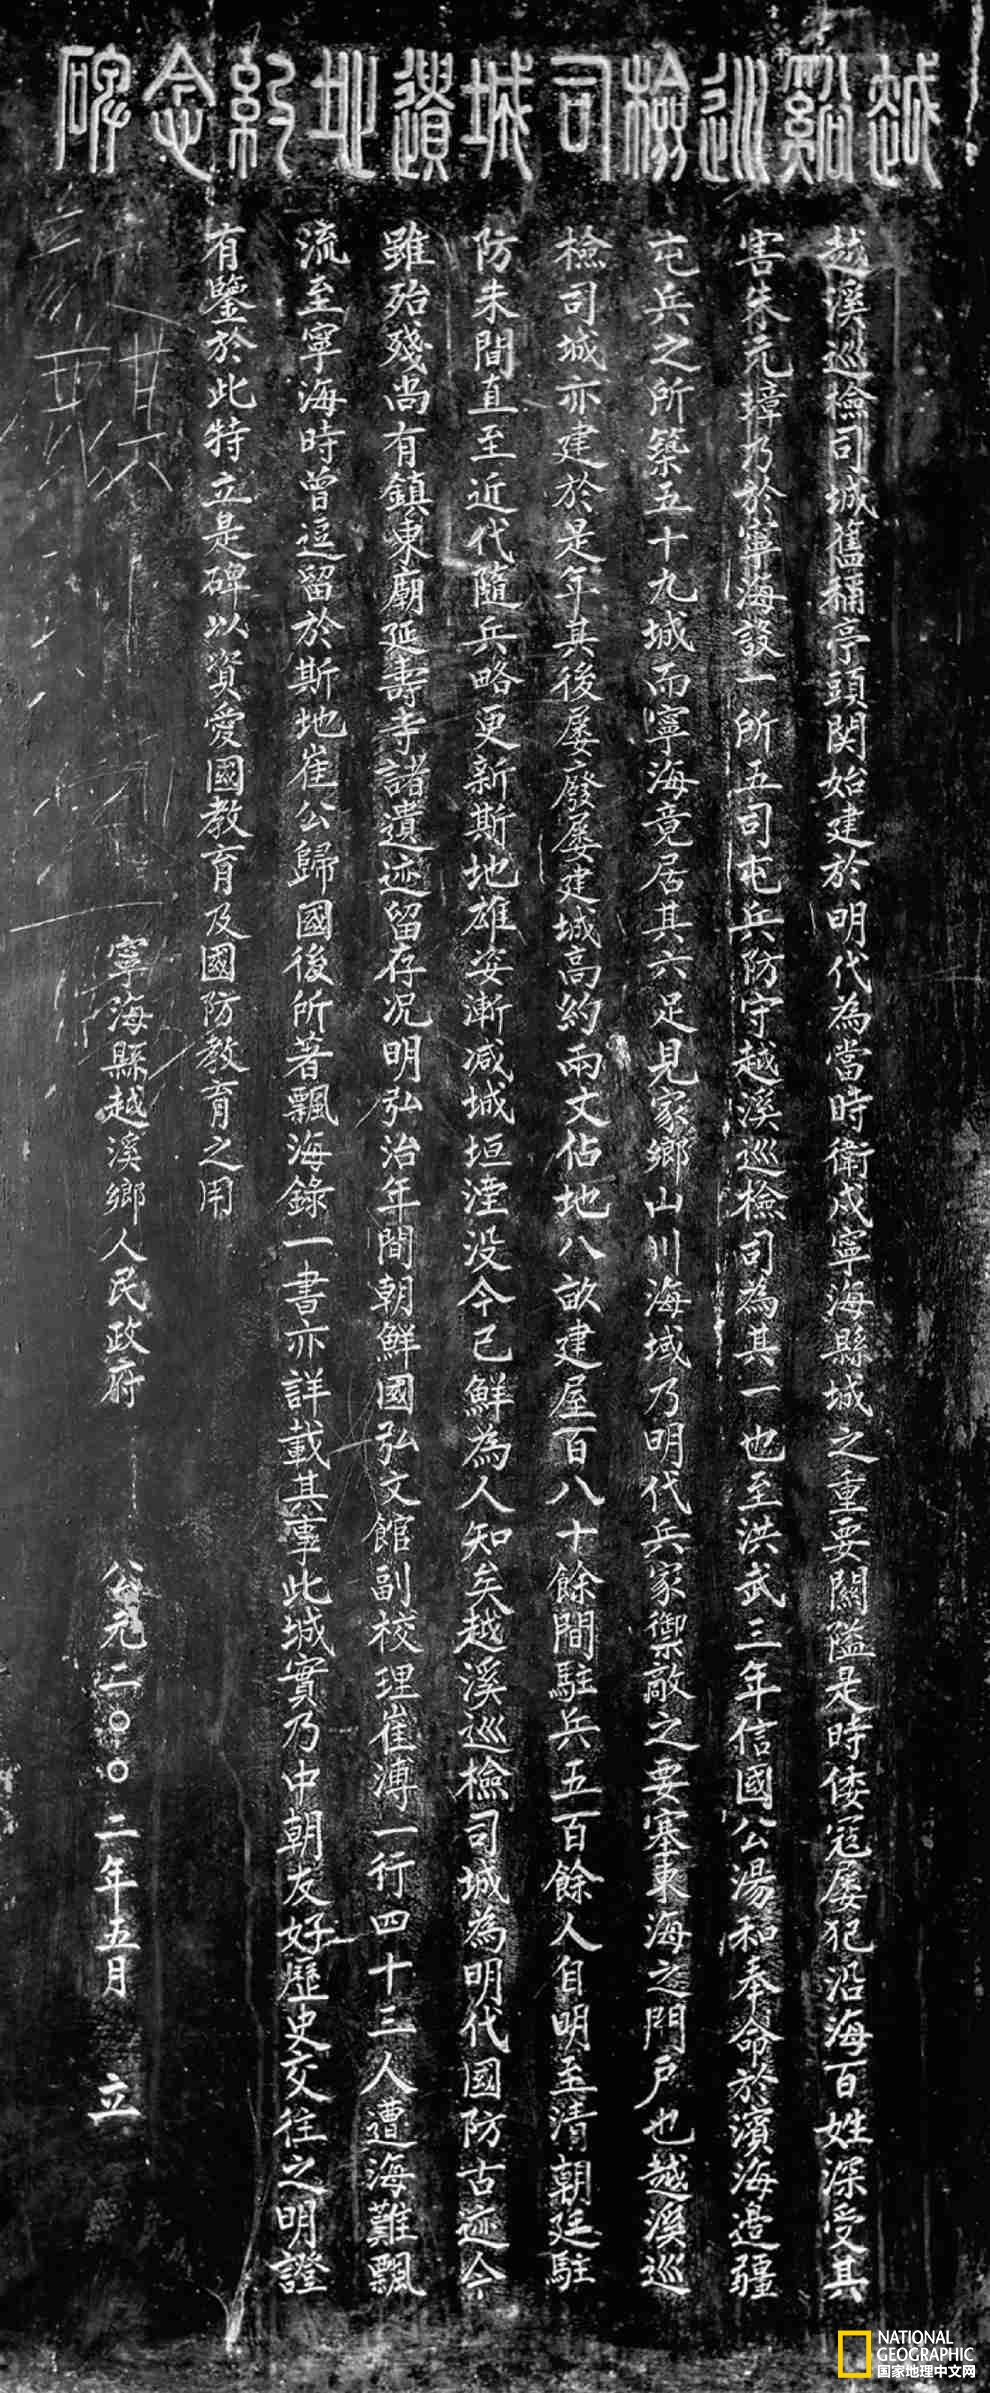 越谿巡檢司城遺址紀念碑
越溪巡檢司城舊稱亭頭関始建於明代為當時衛戍寧海縣城之重要關隘是時倭寇屢犯沿海百姓深受其
害朱元璋乃於寧海設一所五司屯兵防守越溪巡檢司為其一也至洪武三年信國公湯和奉命於濱海邉疆
屯兵之所築五十九城而寧海竟居其六足見家鄉山川海域乃明代兵家禦敵之要塞東海之門戶也越溪巡
檢司城亦建於是年其後屢廢屢建城高約兩丈佔地八畝建屋百八十餘間駐兵五百餘人自明至清朝廷駐
防未間直至近代隨兵略更新斯地雄姿漸减城垣湮没今已鮮為人知矣越溪巡檢司城為明代國防古迹今
雖殆殘尚有鎮東廟延壽寺諸遺迹留存况明弘治年間朝鮮國弘文館副校理崔溥一行四十三人遭海難飄
流至寧海時曾逗留於斯地崔公歸國後所著飄海錄一書亦詳載其事此城實乃中朝友好歷史交往之明證
有鑒於此特立是碑以資愛國教育及國防教育之用
寧海縣越溪鄉人民政府 公元二〇〇二年五月 立
NATIONAL
GEOGRAPHIC
国家地理中文网